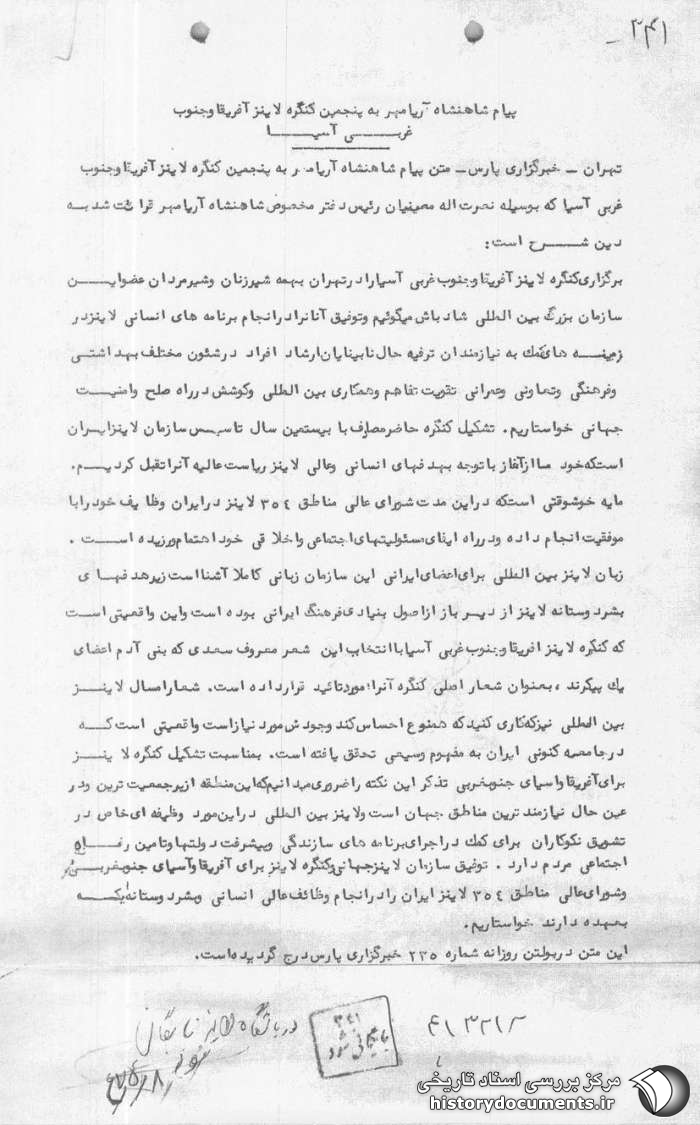 ۳۴۱ -
پیام شاهنشاه آریامهر به پنجمین کنگره لاینز آفریقا وجنوب
غربی آسیا
تهران - خبرگزاری پارس - متن پیام شاهنشاه آریامهر به پنجمین کنگره لاینز آفریقا وجنوب
غربی آسیا که بوسیله نصرت اله معینیان رئیس دفتر مخصوص شاهنشاه آریامهر قرائت شد به
دین شرح است:
برگزاری کنگره لاینز آفریقا وجنوب غربی آسیا رادر تهران بهمه شیرزنان وشیرمردان عضو این
سازمان بزرگ بین المللی شادباش میگوئیم وتوفیق آنان رادر انجام برنامه های انسانی لاینز در
زمینه های کمک به نیازمندان ترفیه حال نابینایان ارشاد افراد در شئون مختلف بهداشتی
وفرهنگی وتعاونی وعمرانی تقویت تفاهم وهمکاری بین المللی وکوشش در راه صلح وامنیت
جهانی خواستاریم. تشکیل کنگره حاضر مصادف با بیستمین سال تاسیس سازمان لاینز ایران
است که خود ما از آغاز با توجه بهدفهای انسانی وعالی لاینز ریاست عالیه آنرا تقبل کردیم.
مایه خوشوقتی است که در این مدت شورای عالی مناطق ۳۵۴ لاینز در ایران وظایف خود را با
موفقیت انجام داده ودر راه ایفای مسئولیتهای اجتماعی واخلاقی خود اهتمام ورزیده است.
زبان لاینز بین المللی برای اعضای ایرانی این سازمان زبانی کاملا آشنا است زیر هدفهای
بشردوستانه لاینز از دیر باز از اصول بنیادی فرهنگ ایرانی بوده است واین واقعیتی است
که کنگره لاینز افریقا وجنوب غربی آسیا با انتخاب این شعر معروف سعدی که بنی آدم اعضای
یک پیکرند، بعنوان شعار اصلی کنگره آنرا مورد تائید قرار داده است. شعار امسال لاینز
بین المللی نیز که کاری کنید که همنوع احساس کند وجودش مورد نیاز است واقعیتی است که
در جامعه کنونی ایران به مفهوم وسیعی تحقق یافته است. بمناسبت تشکیل کنگره لاینز
برای آفریقا واسیای جنوبغربی تذکر این نکته را ضروری میدانیم که این منطقه از پر جمعیت ترین ودر
عین حال نیازمند ترین مناطق جهان است ولاینز بین المللی در این مورد وظیفه ای خاص در
تشویق نکوکاران برای کمک در اجرای برنامه های سازندگی وپیشرفت دولتها وتامین رفاه
اجتماعی مردم دارد. توفیق سازمان لاینز جهانی وکنگره لاینز برای آفریقا وآسیای جنوبغربی
وشورای عالی مناطق ۳۵۴ لاینز ایران رادر انجام وظائف عالی انسانی وبشردوستانه ایکه
بعهده دارند خواستاریم.
این متن در بولتن روزانه شماره ۲۳۵ خبرگزاری پارس درج گردیده است.
۳۴۱
بایگانی شود
مرکز بررسی اسناد تاریخی
historydocuments.ir